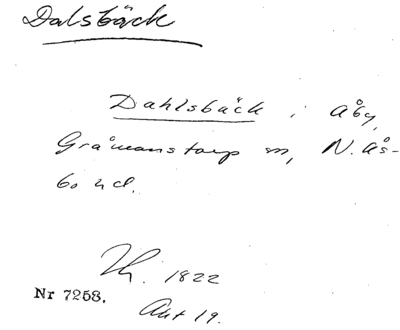 Dalsbäck
Dahlsbäck i Åby,
Gråmanstorp sn, N. Ås-
bo hd.
Th. 1822
Nr 7258.
Akt 19.